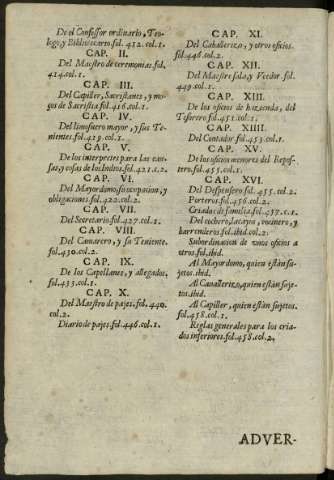 De el Confessor ordinario, Teo-
logo, y Bibliotecario. fol. 412. col. 1.
CAP. II.
Del Maestro de ceremonias. fol.
414. col. 1.
CAP. III.
Del Capiller, Sacristanes, y mo-
ços de Sacristia fol. 416. col. 1.
CAP. IV.
Del limosnero mayor, y sus Te-
nientes. fol. 419. col. 1.
CAP. V.
De los interpretes para las cau-
sas, y cosas de los Indios. fol. 421. c. 2.
CAP. VI.
Del Mayordomo, su ocupacion, y
obligaciones. fol. 422. col. 2.
CAP. VII.
Del Secretario. fol. 427. col. 1.
CAP. VIII.
Del Camarero, y su Teniente.
fol. 430. col. 2.
CAP. IX.
De los Capellanes, y allegados.
fol. 435. col. 1.
CAP. X.
Del Maestro de pajes. fol. 440.
col. 2.
Diario de pajes. fol. 446. col. 1.
CAP. XI.
Del Cauallerizo, y otros oficios.
fol. 446. col. 2.
CAP. XII.
Del Maestresala, y Veedor fol.
449. col. 1.
CAP. XIII.
De los oficios de hazienda, del
Tesorero fol. 451. col. 1.
CAP. XIIII.
Del Contador fol. 453. col. 1.
CAP. XV.
De los oficios menores del Repos-
tero. fol. 455. col. 1.
CAP. XVI.
Del Despensero fol. 455. col. 2.
Porteros. fol. 456. col. 2.
Criados de familia fol. 457. c. 1.
Del cochero, lacayo, cocinero, y
barrenderos fol. ibid. col. 2.
Subordinacion de vnos oficios a
otros fol. ibid.
Al Mayordomo, quien están su-
jetos. ibid.
Al Cauallerizo, quien están suje-
tos. ibid.
Al Capiller, quien están sujetos.
fol. 458. col. 1.
Reglas generales para los cria-
dos inferiores. fol. 458. col. 2.
ADVER-